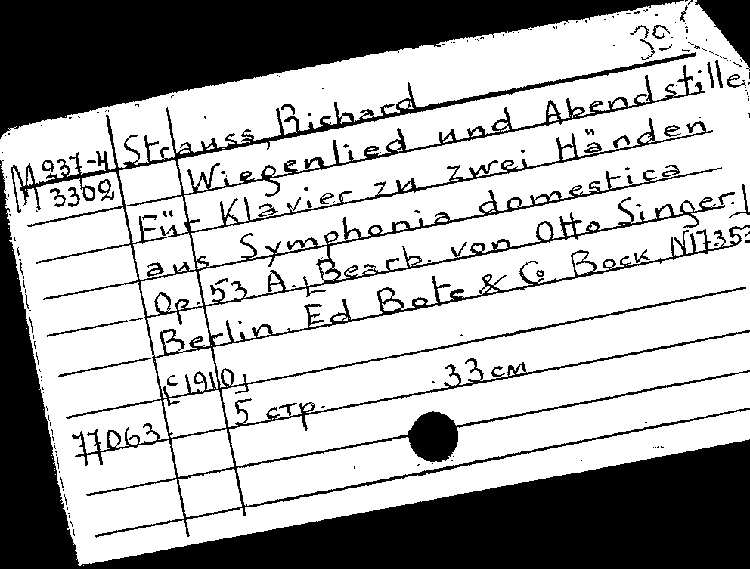 39
Strauss, Richard
М 937-Н
3302
Wiegenlied und Abendstille
Für Klavier zu zwei Händen
aus Symphonia domestica
Op. 53 A. [Bearb. von Otto Singer.]
Berlin. Ed Bote & G Bock. N17353
[1910]
5 стр. 33 см
77063